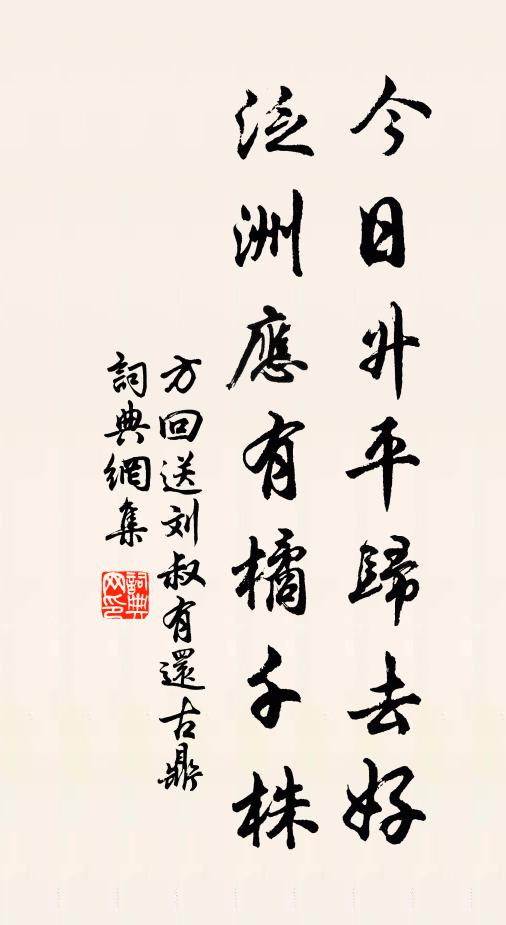 今日升平歸去好
泛洲應有橘千株
方回送刘叔有還古鼎
詞典網集
詞典网印